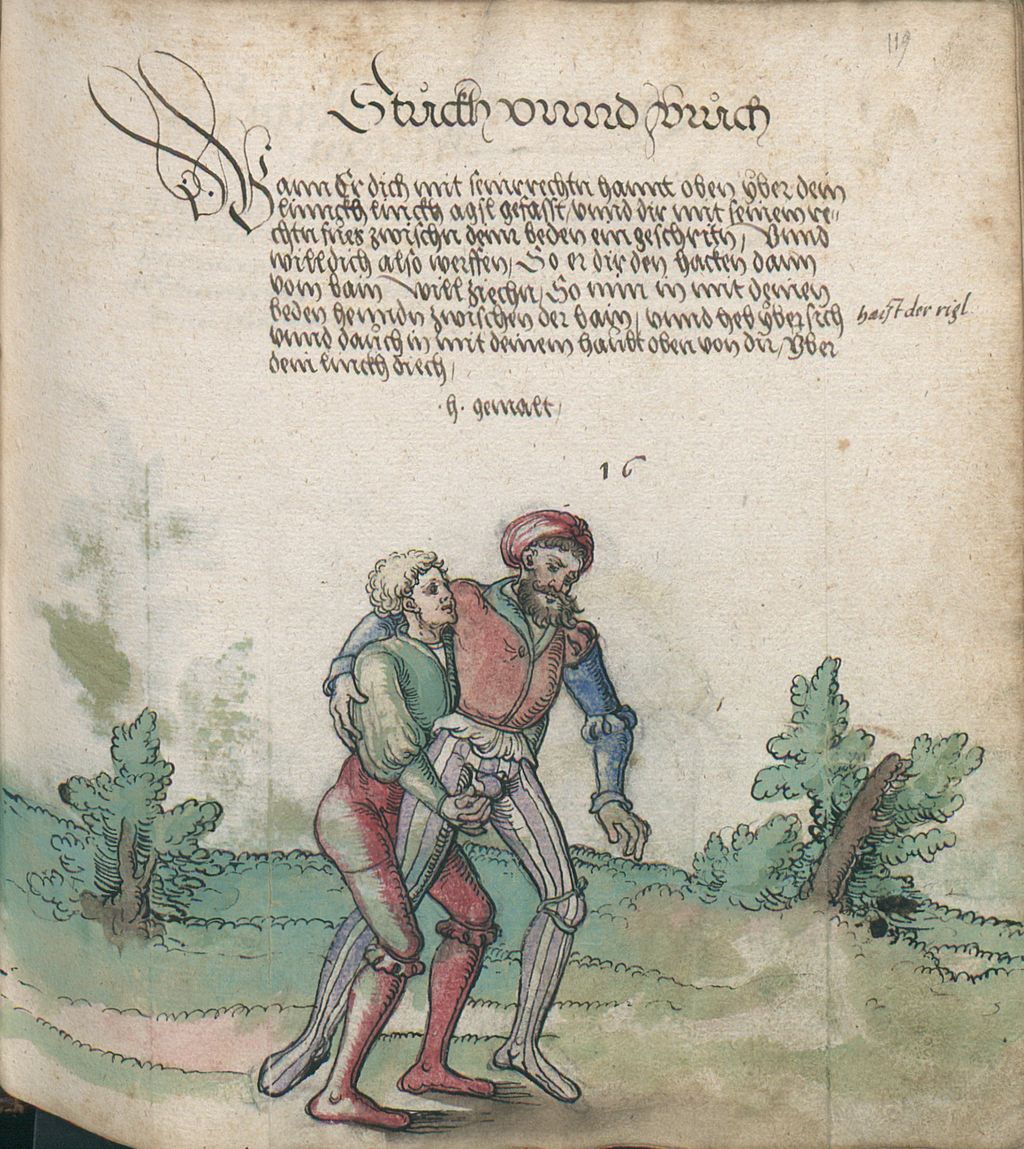 119
Stuckh vnnd Bruch
Wann Er dich mit seinr rechtn hannt oben yber dein
linnckh linckh agsl gefasst, vnnd dir mit seinem re=
chtn fues zwischn denn beden ein geschritn, Vnnd
will dich also werffen, So er dir den hacken dann
vom bain will ziechn, So nim in mit deinen
beden henndn zwischen der bain, vnnd heb yber sich
haist der rigl
vnnd dauch in mit deinem haubt oben von dir, yber
dein linckh diech,
.h. gemalt,
16